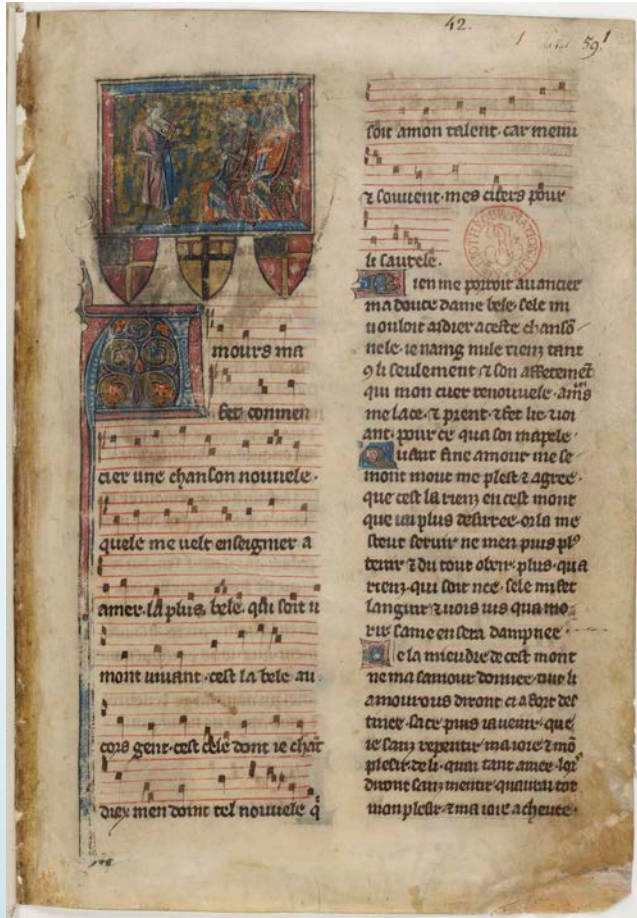 42.
59
mours ma
fet commen
cier une chanson nouvele.
quele me velt enseignier a
amer. la plus bele qui soit u
mont vivant. cest la bele au
cors gent. cest cele dont ie chāt
diex men doint tel nouvele q̄
soit a mon talent. car menu
⁊ souvent. mes cuers pour
li sautele.
ien me porroit avancier
ma douce dame bele. sele mi
vouloit aidier a ceste chansō
nele. ie naing nule riens tant
9 li seulement ⁊ son affetemēt
qui mon cuer renouvele. amrs
me lace. ⁊ prent. ⁊ fet lie ⁊ ioi
ant. pour ce qua soi mapele.
uant fine amour me se
mont mout me plest ⁊ agree.
que cest la riens en cest mont
que iai plus desirree. or la me
steut servir ne men puis pl9
tenir ⁊ du tout obeir. plus. qua
riens. qui soit nee. sele mi fet
languir ⁊ vois ius qua mo
rir. same en sera dampnee.
e la mieudre de cest mont
ne ma samour donnee. tuit li
amourous diront ci a fort des
tinee. sa ce puis ia venir. que
ie sanz repentir ma ioie ⁊ mō
plesir. de li. quai tant amee. lors
diront sanz mentir quavrai tot
mon plesir. ⁊ ma ioie achevee.